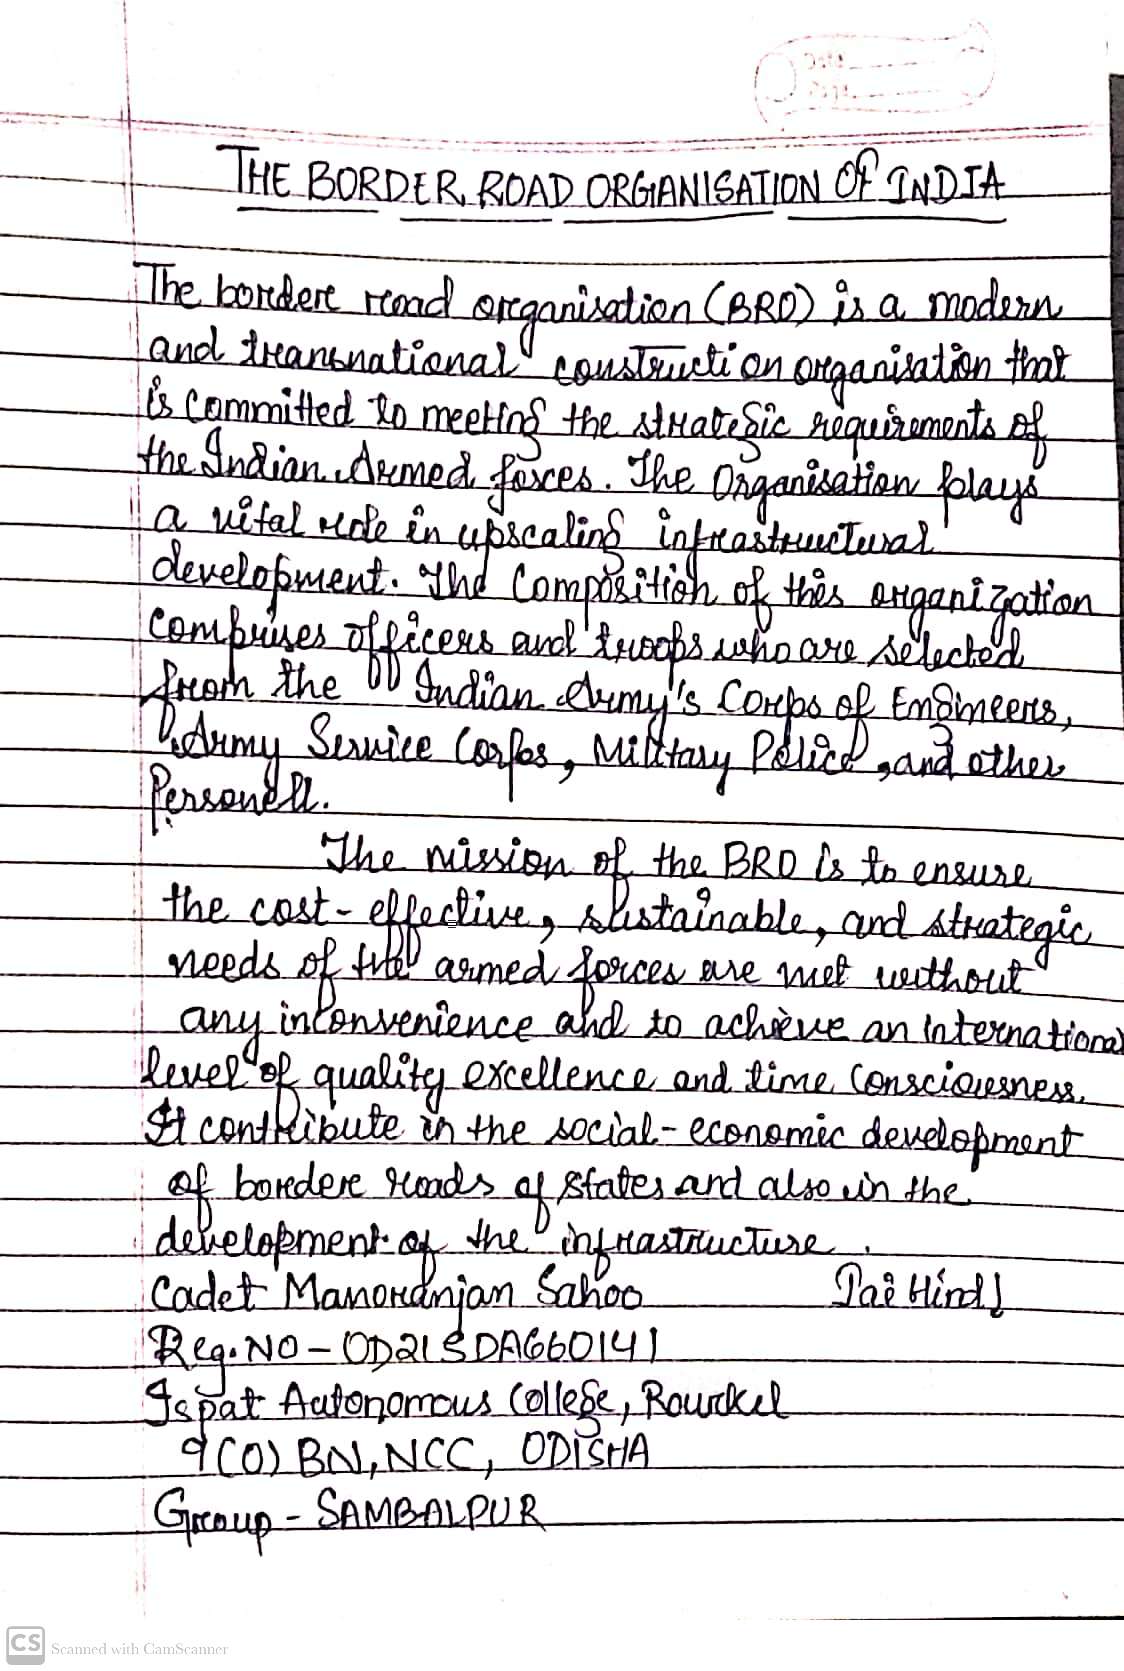 Date
Page
THE BORDER ROAD ORGANISATION OF INDIA
The border road organisation (BRO) is a modern
and transnational construction organisation that
is committed to meeting the strategic requirements of
the Indian Armed forces. The Organisation plays
a vital role in upscaling infrastructural
development. The Composition of this organization
comprises officers and troops who are selected
from the Indian Army's Corps of Engineers,
Army Service Corps, Military Police, and other
Personell.
The mission of the BRO is to ensure
the cost-effective, sustainable, and strategic
needs of the armed forces are met without
any inconvenience and to achieve an international
level of quality excellence and time consciousness.
It contribute in the social-economic development
of border roads of states and also in the
development of the infrastructure.
Cadet Manoranjan Sahoo Jai Hind!
Reg.NO - OD21SDA660141
Ispat Autonomous College, Rourkel
9(O) BN, NCC, ODISHA
Group - SAMBALPUR
CS Scanned with CamScanner